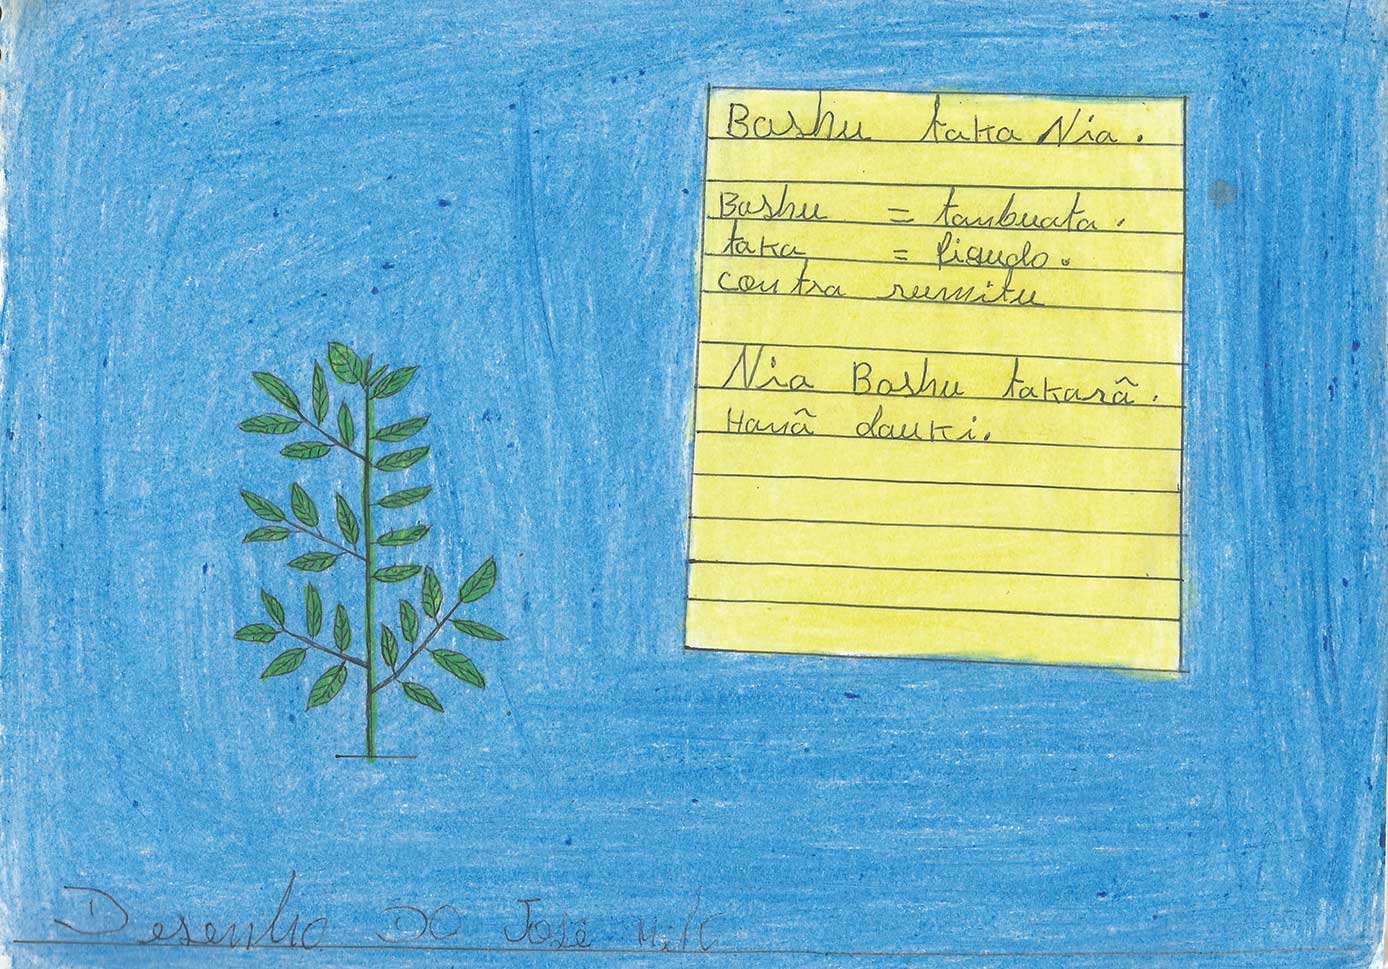 Bashu taka Nia.
Bashu = tambuata.
taka = figudo.
contra rumitu
Nia Bashu takarã.
Hanã dauki.
Desenho DO José